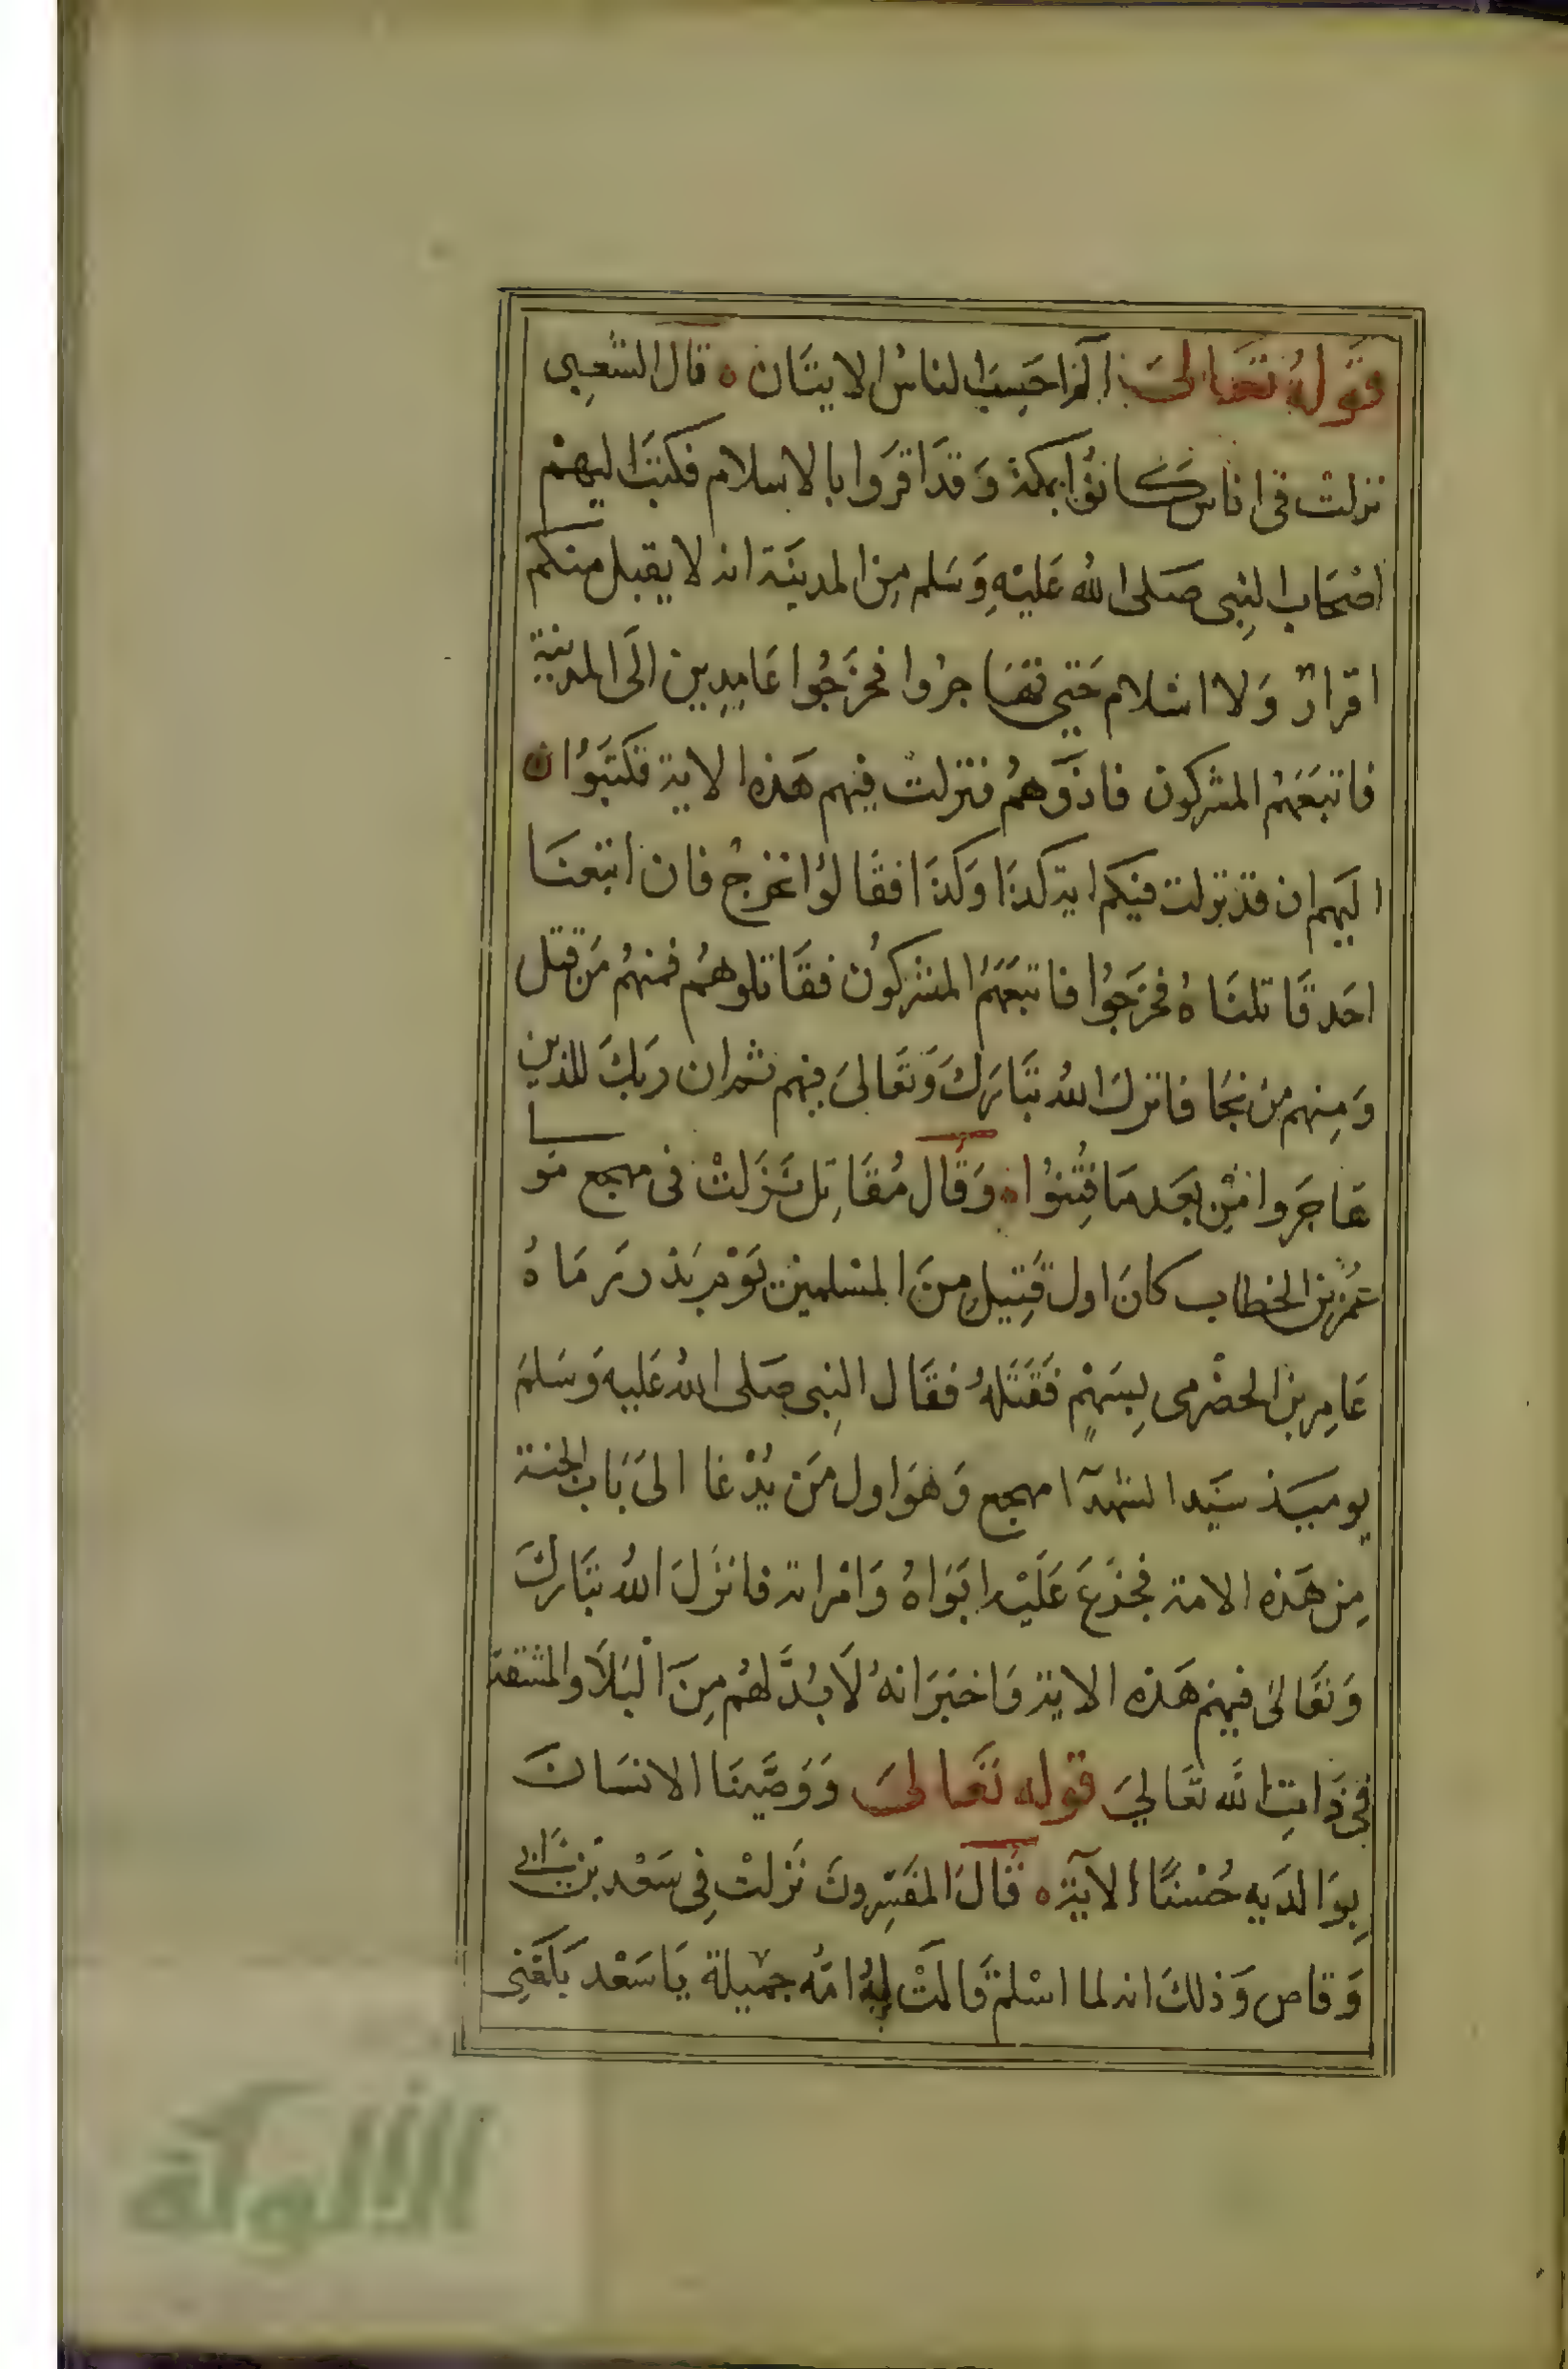 قوله تعالى الم احسب الناس الايتان ه قال الشعبي
نزلت في اناس كانوا بمكة وقد اقروا بالاسلام فكتب اليهم
اصحاب النبي صلى الله عليه وسلم من المدينة انه لا يقبل منكم
اقرار ولا اسلام حتى تهاجروا فخرجوا عامدين الى المدينة
فاتبعهم المشركون فاذوهم فنزلت فيهم هذه الاية فكتبوا ن
اليهم ان قد نزلت فيكم اية كذا وكذا فقالوا نخرج فان اتبعنا
احد قاتلناه فخرجوا فاتبعهم المشركون فقاتلوهم فمنهم من قتل
ومنهم من نجا فانزل الله تبارك وتعالى فيهم ثم ان ربك للذين
هاجروا من بعد ما فتنوا ه وقال مقاتل نزلت في مهجع مولى
عمر بن الخطاب كان اول قتيل من المسلمين يوم بدر رماه
عامر بن الحضرمي بسهم فقتله فقال النبي صلى الله عليه وسلم
يوميذ سيد الشهدآ مهجع وهو اول من يدعا الى باب الجنة
من هذه الامة فجزع عليه ابواه وامراته فانزل الله تبارك
وتعالى فيهم هذه الاية واخبر انه لا بد لهم من البلا والمشقة
في ذات الله تعالى قوله تعالى ووصينا الانسان
بوالديه حسنا الآية ه قال المفسرون نزلت في سعد بن ابي
وقاص وذلك انه لما اسلم قالت له امه جميلة يا سعد بلغني
الألوكة